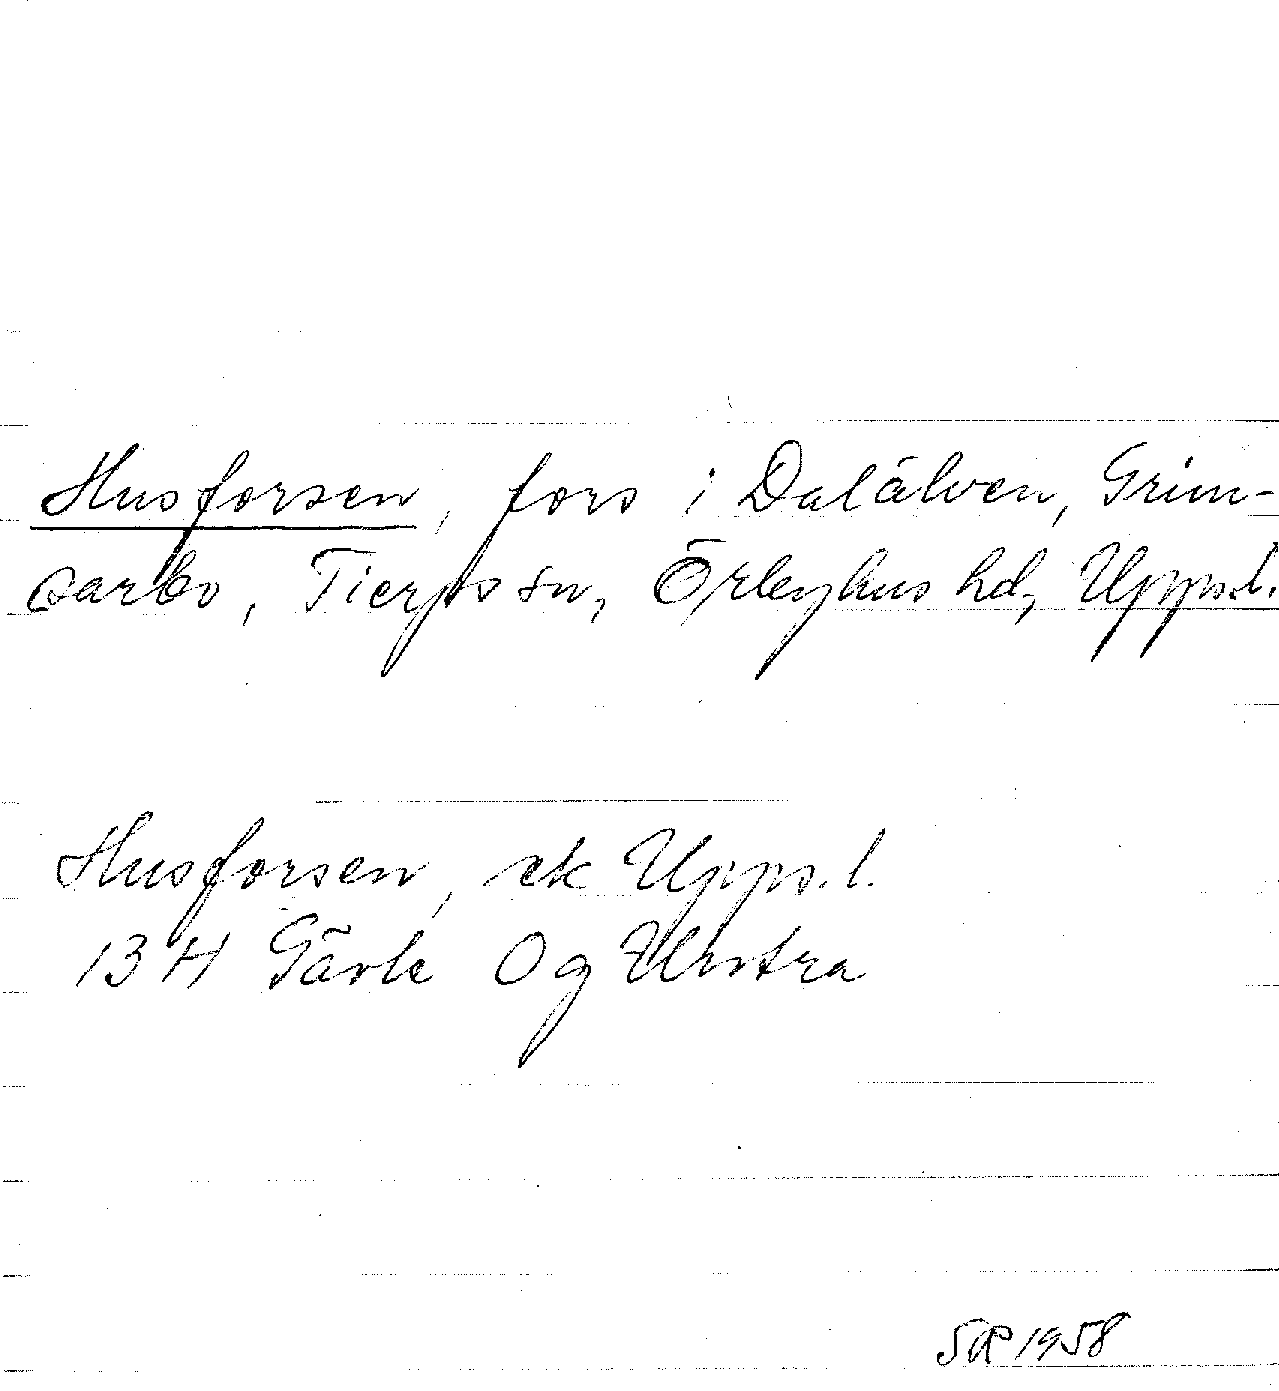 Husforsen, fors i Dalälven, Grim-
sarbo, Tierps sn, Örbyhus hd, Upps.l.
Husforsen, ek Upps.l.
13H Gävle Og Utvtra
SR 1958